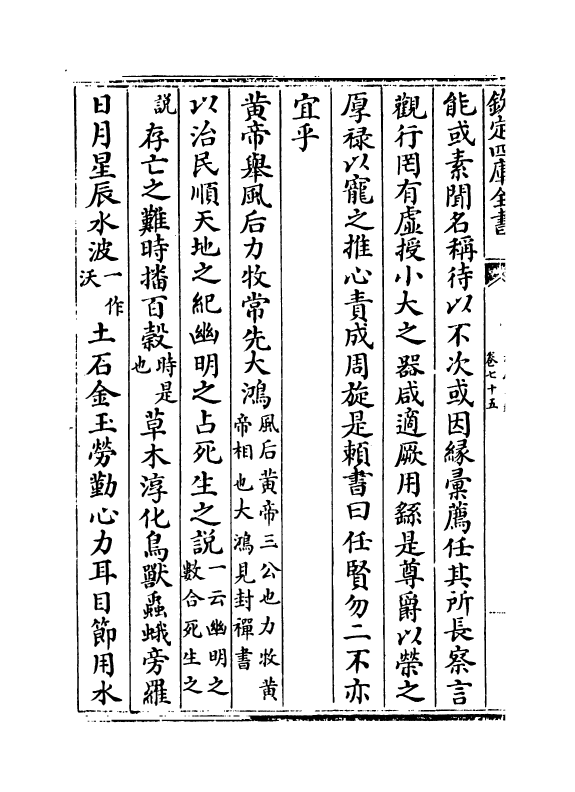 欽定四庫全書
卷七十五
能或素聞名稱待以不次或因緣彚薦任其所長察言
觀行罔有虛授小大之器咸適厥用繇是尊爵以榮之
厚禄以寵之推心責成周旋是賴書曰任賢勿二不亦
宜乎
黄帝舉風后力牧常先大鴻風后黄帝三公也力牧黄帝相也大鴻見封禪書
以治民順天地之紀幽明之占死生之説一云幽明之數合死生之
説存亡之難時播百穀時是也草木淳化鳥獸蟲蛾旁羅
日月星辰水波一作沃土石金玉勞勤心力耳目節用水